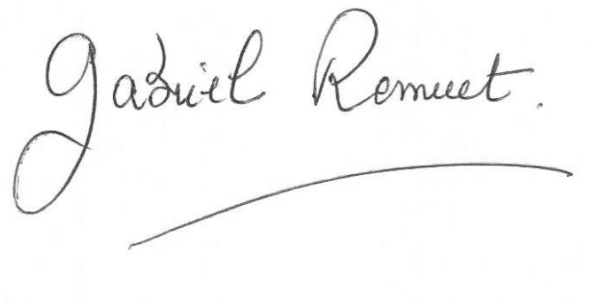 Gabriel Remuet.